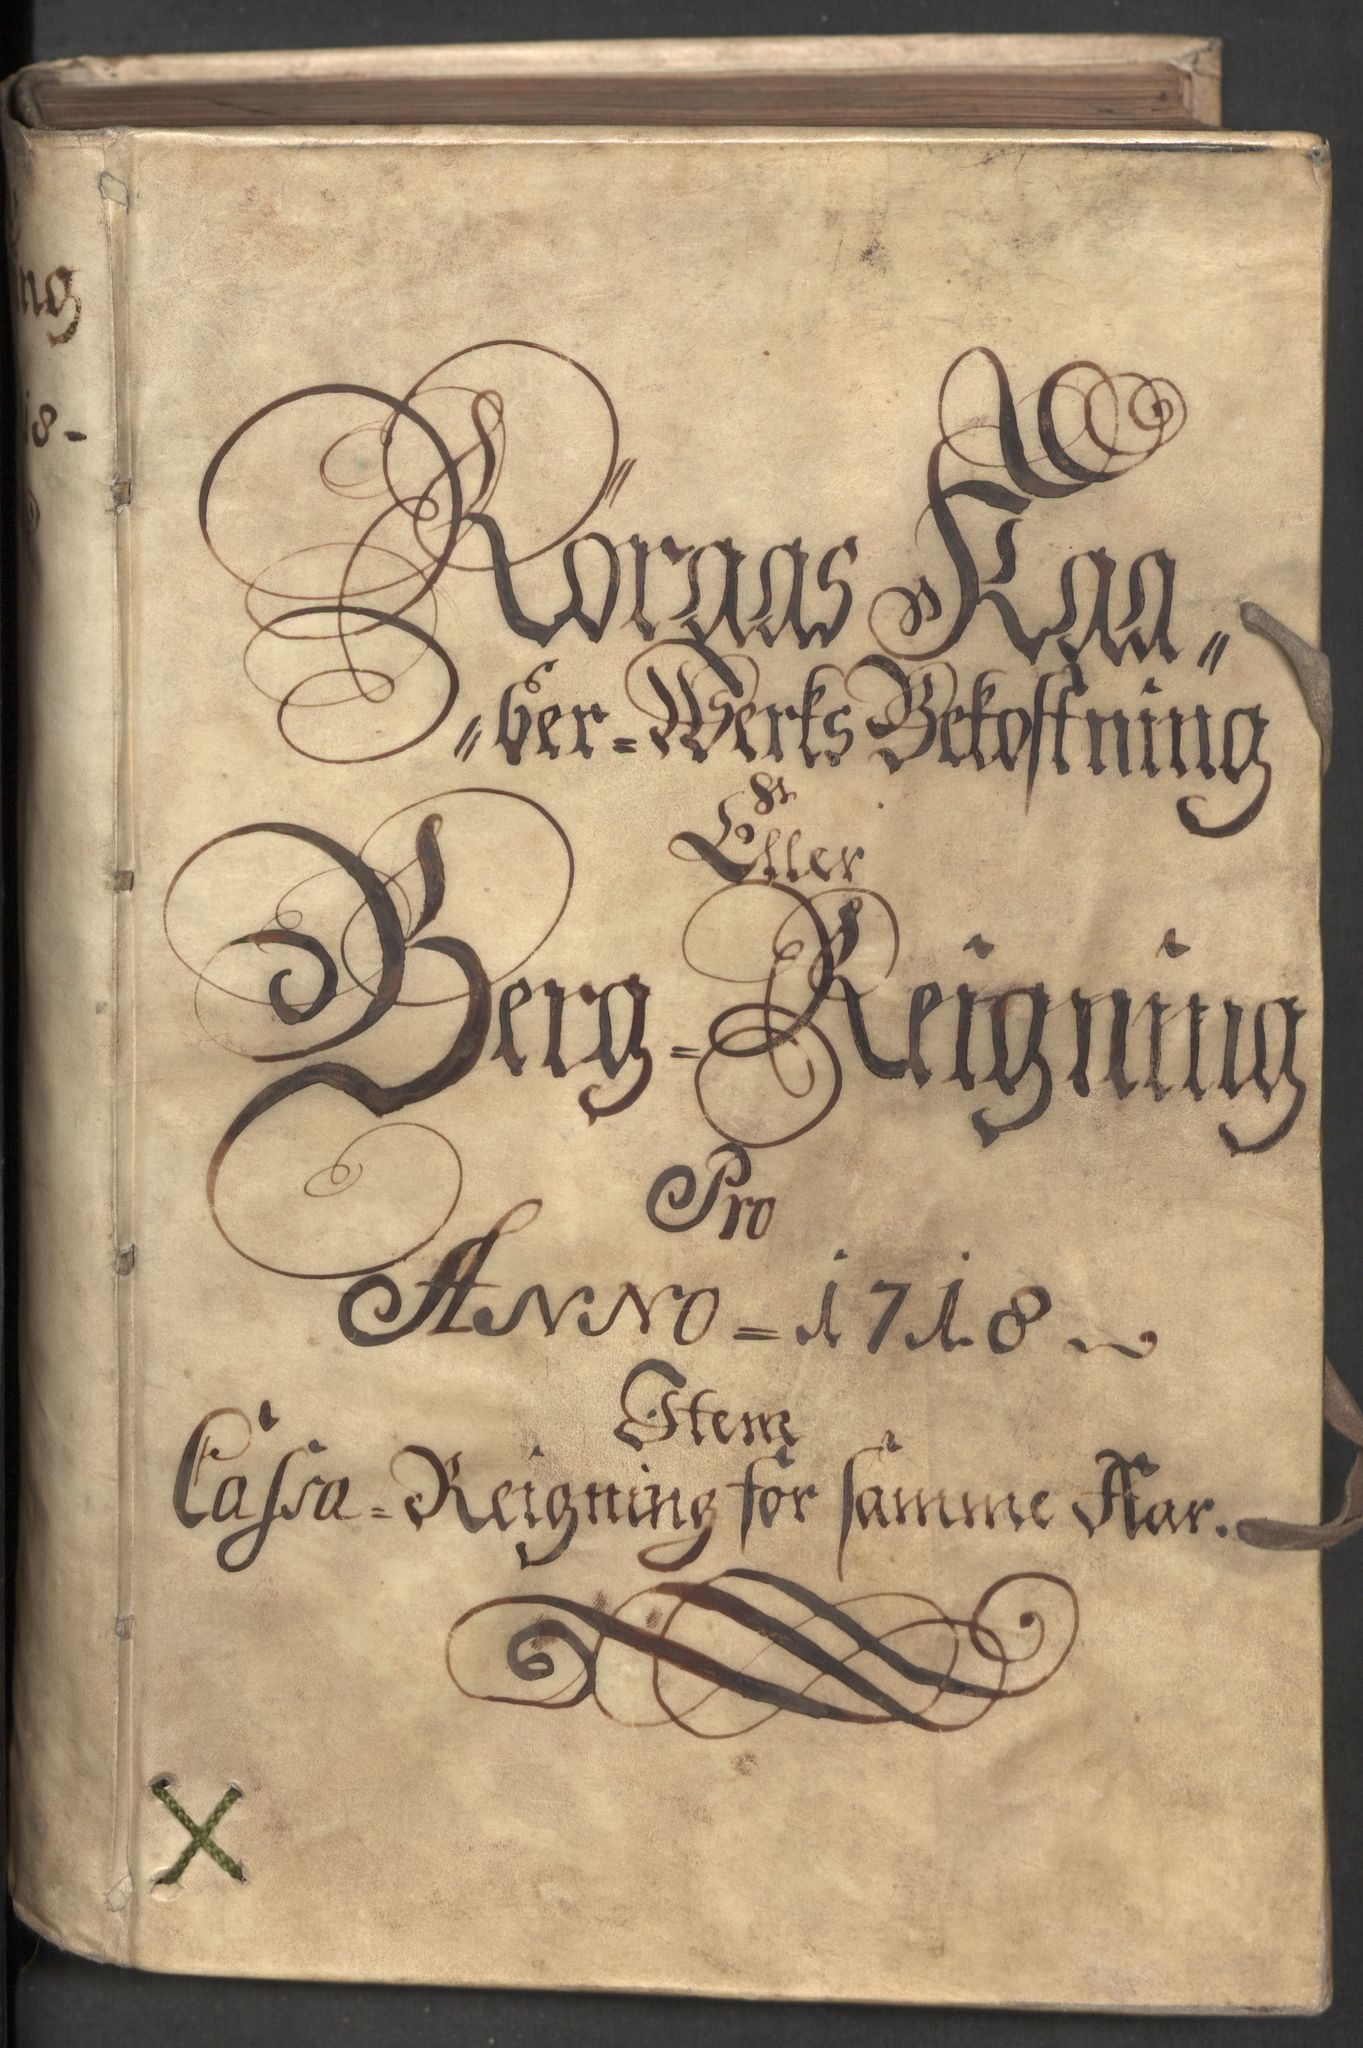 ng
18-
Röraas Kaa„
„ber=Werks Bekostning
Eller
Berg=Reigning
Pro
ANNO=1718
Item
Cassa=Reigning for samme Aar.